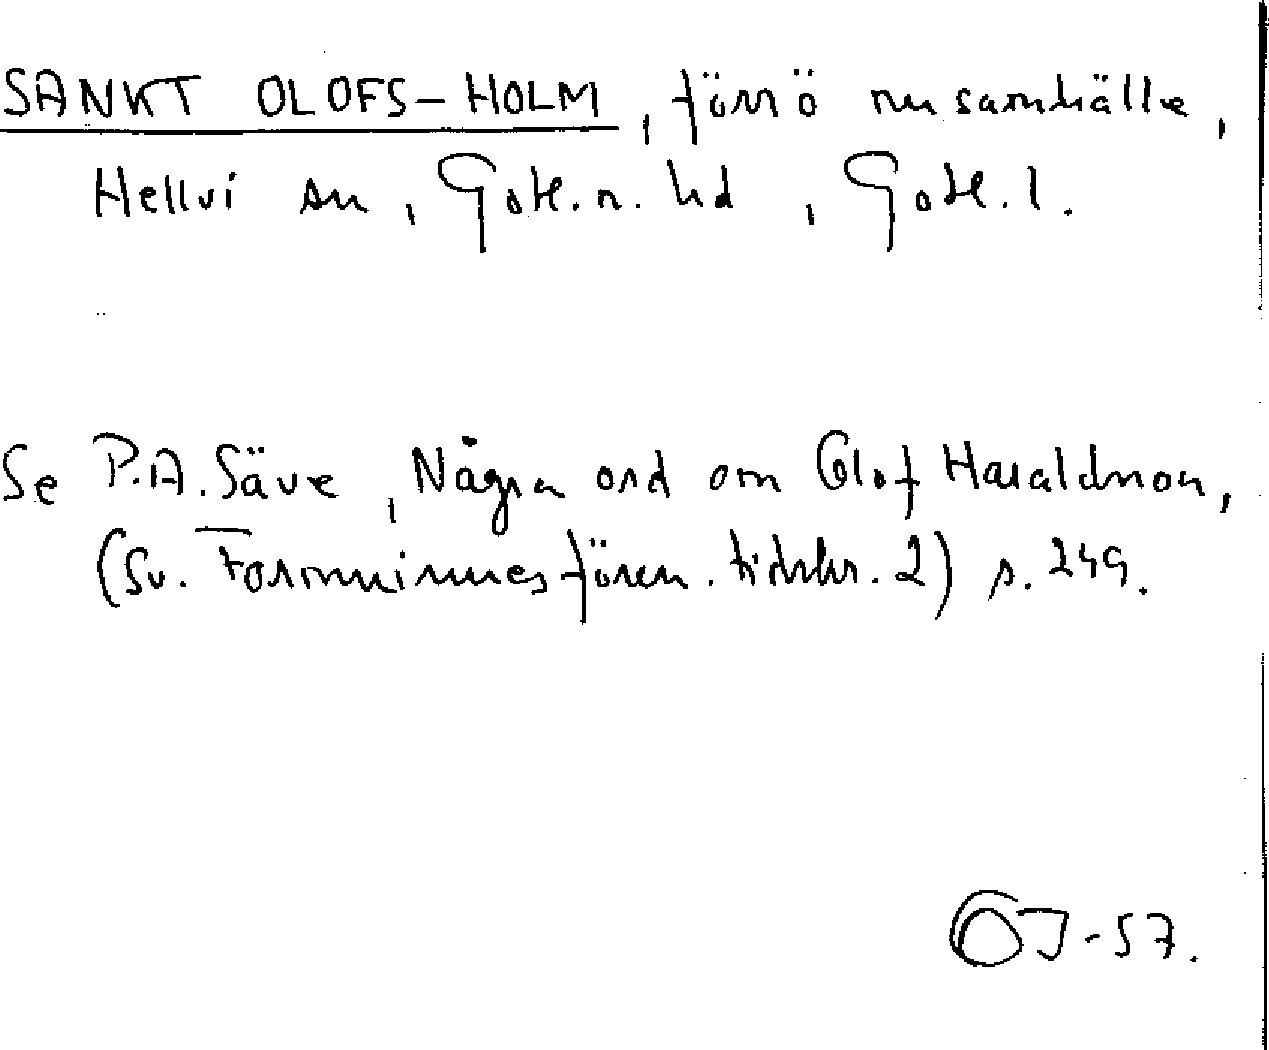 SANKT OLOFS-HOLM, förr ö nu samhälle,
Hellvi sn, Gotl. n. hd, Gotl. l.
Se P.A. Säve, Några ord om Olof Haraldsson,
(Sv. Fornminnesfören. tidskr. 2) s. 249.
OJ-57.